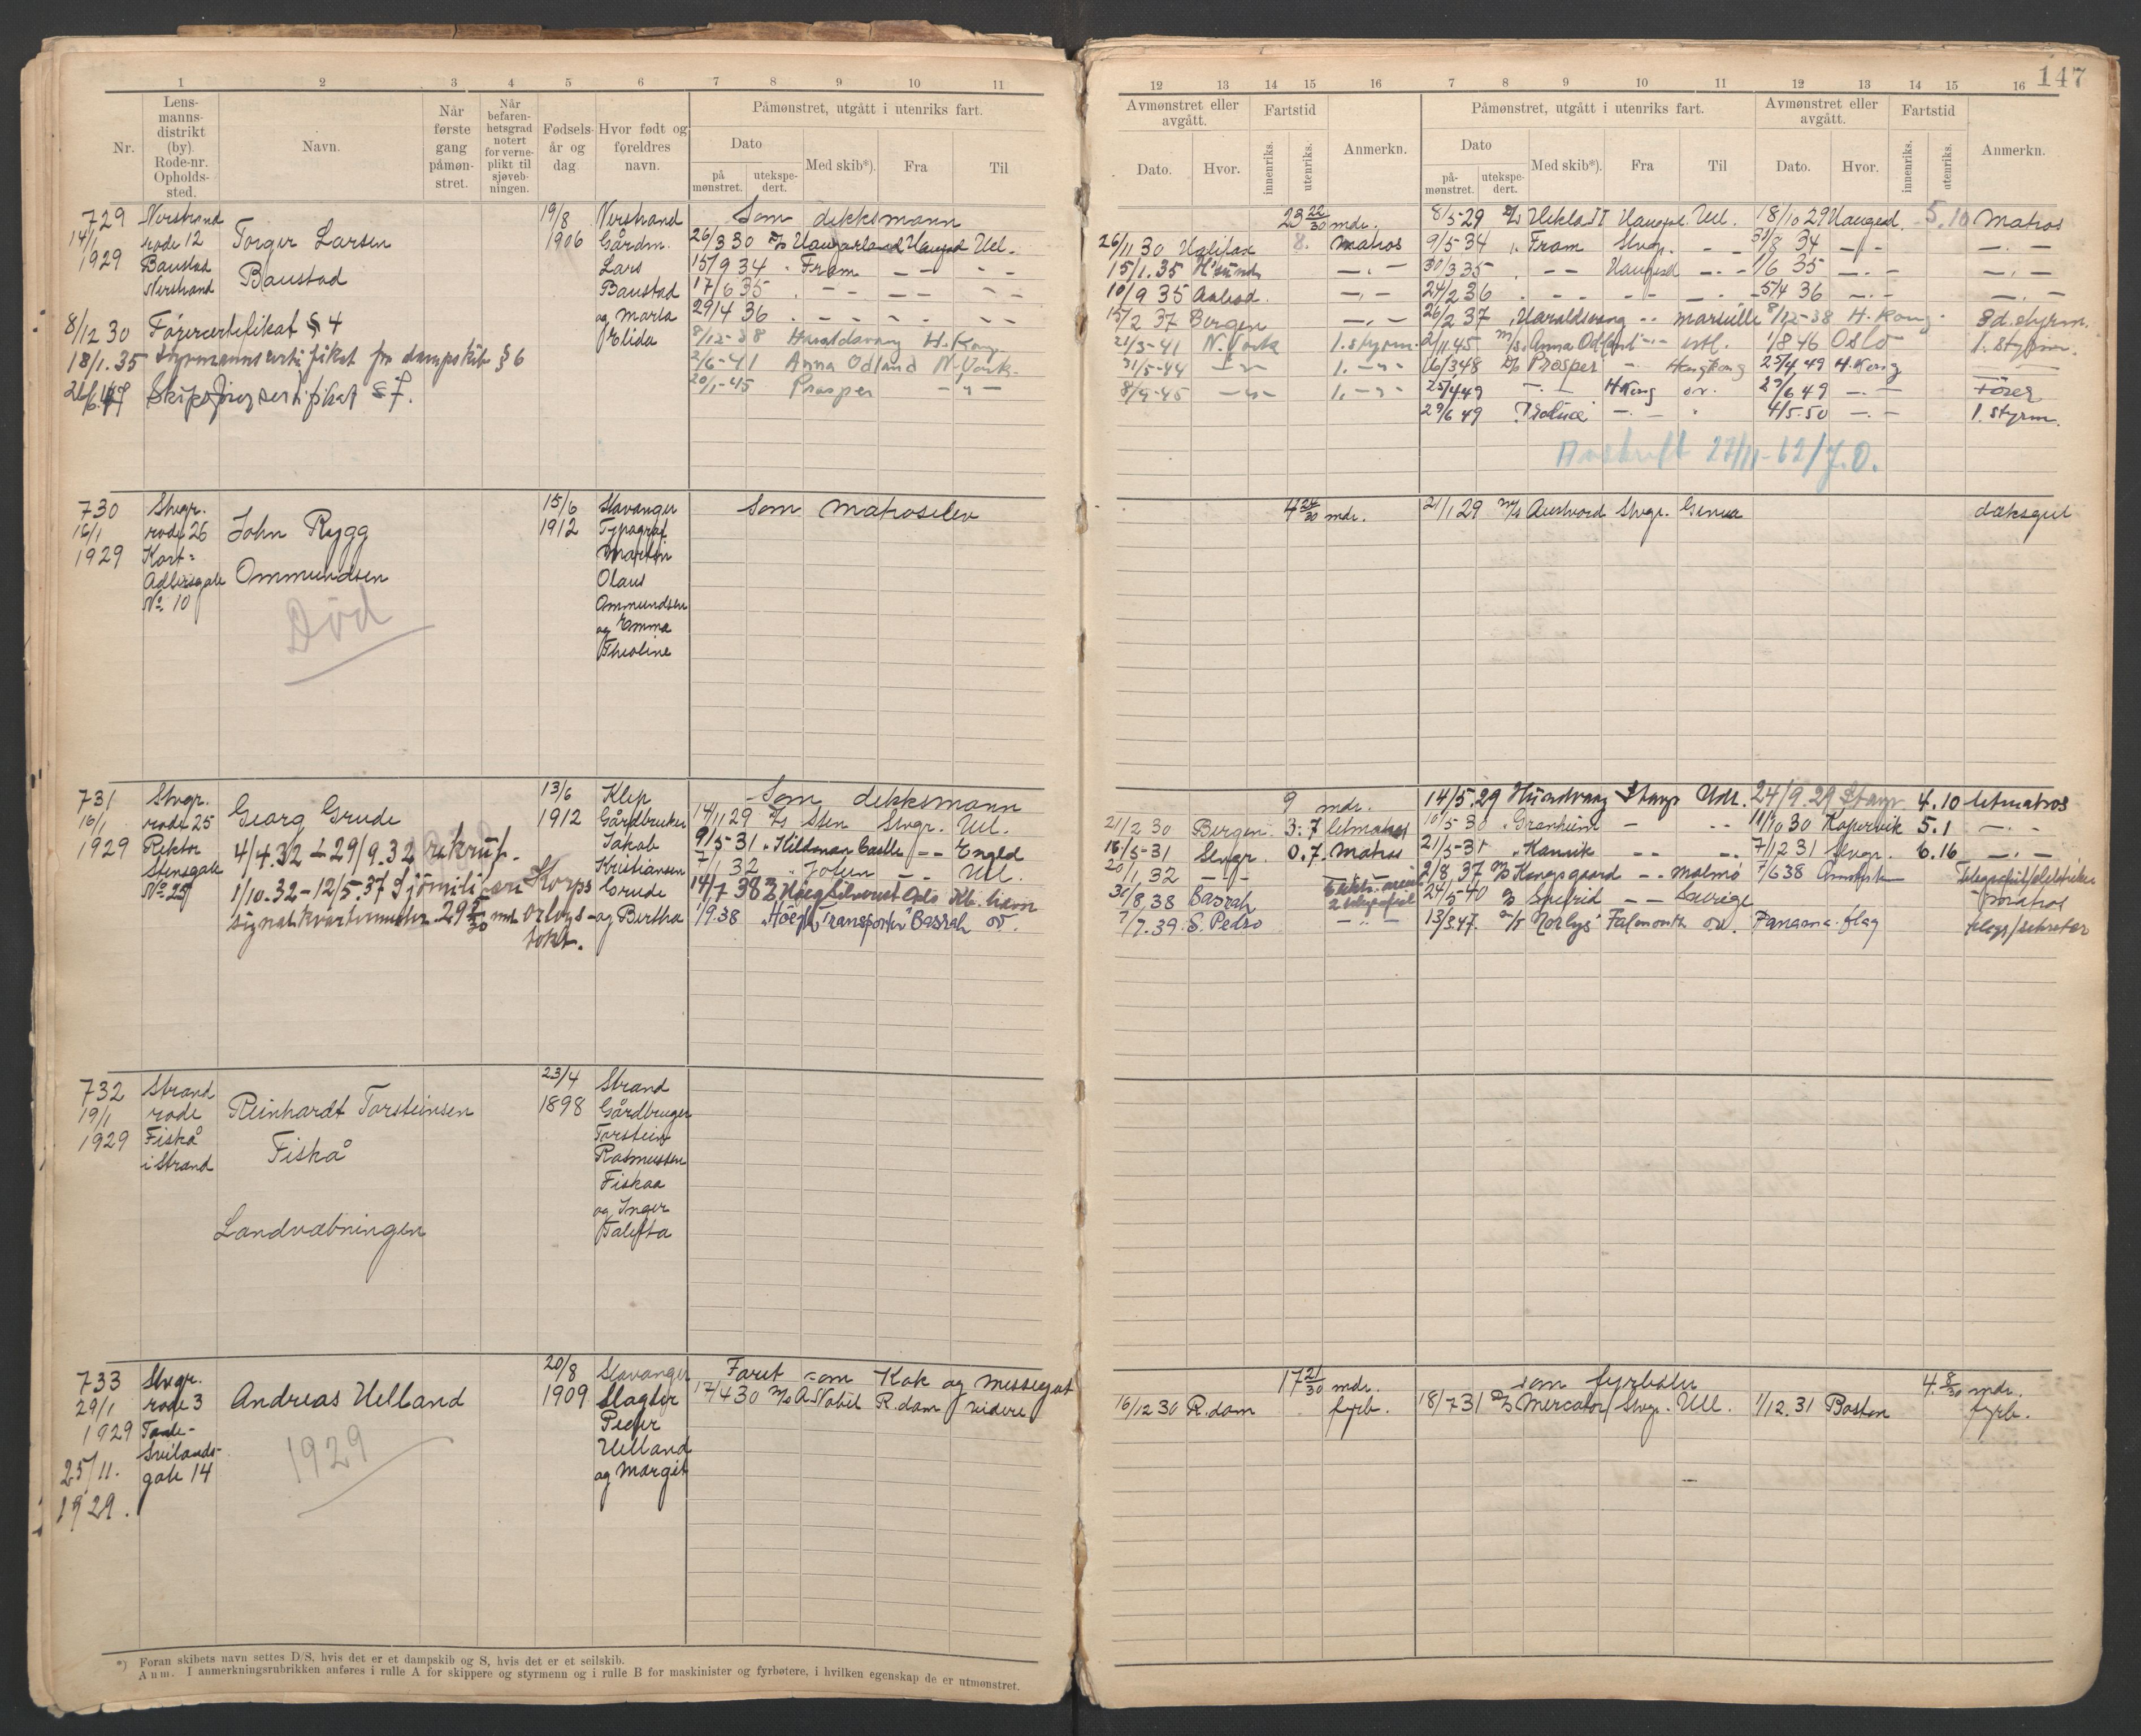 147
1 2 3 4 5 6 7 8 9 10 11
Nr.
Lens-
manns-
distrikt
(by).
Rode-nr.
Opholds-
sted.
Navn.
Når
første
gang
påmøn-
stret.
Når
befaren-
hetsgrad
notert
for verne-
plikt til
sjøveb-
ningen.
Fødsels-
år og
dag
Hvor født og
foreldres
navn.
Påmønstret, utgått i utenriks fart.
Dato
på
mønstret.
utekspe-
dert.
Med skib*).
Fra
Til
12 13 14 15 16 7 8 9 10 11 12 13 14 15 16
Avmønstret eller
avgått.
Dato.
Hvor.
Fartstid
innenriks.
utenriks.
Anmerkn.
Påmønstret, utgått i utenriks fart.
Dato
på-
mønstret.
utekspe-
dert.
Med skib*).
Fra
Til
Avmønstret eller
avgått.
Dato.
Hvor.
Fartstid
innenriks.
utenriks.
Anmerkn.
729
14/1
1929
Nerstrand
rode 12
Baustad
Nerstrand
Torger Larsen
Baustad
8/12 30 Förercertifikat § 4
18/1.35 Styrmannssertifikat fra dampskib § 6
Skipsförersertifikat § 7.
19/8
1906
Nerstrand
Gårdm.
Lars
Baustad
og Marta
Elida
Som dekksmann
26/3 30 Haugarland Haugsd Utl.
15/9 34 " Fram — — — —
17/6 35 " — — — — — —
29/4 36 " — — — — — —
8/12-38 Haraldsvang H. Kong
2/6-41 Anna Odland N-York-
20/1-45 Prosper — " —
23 22/30 mdr.
26/11 30 Halifax 8. matros
15/1.35 H'sund — " —
10/9 35 — " —
15/2 37 Bergen — " —
21/3-41 N. York 1. styrm.
31/5-44 — " — 1. — " —
8/9-45 — " — 1. — " —
8/5-29 D/S Hekla II Haugsd. Utl. 18/10 29 Haugesd. 5.10 Matros
9/5 34 " Fram Stvgr. — 31/8 34 — " — — " —
30/3 35 " — — Haugesd — " — 1/6 35 — " — — " —
24/2 36 " — — — — — — 5/4 36 — " — — " —
26/2 37 " Haraldsvang — " Marseille 8/12-38 H. Kong. 3d. styrm.
2/11.45 M/S Anna Odland — " — utl. 1/8 46 Oslo 1. styrm.
16/3 48 D/S Prosper — Hongkong 25/4 49 H. Kong
25/4 49 — " — H Kong o.v. 29/6 49 — " — Förer
29/6 49 — " — " 4/5-50 — " — 1. styrm.
Avskrift 27/11-62/J.O.
730
16/1
1929
Stvgr.
rode 26
Kort=
Adlersgate
No. 10
John Rygg
Ommundsen
Död
15/6
1912
Stavanger
Typograf
Martin
Olaus
Ommundsen
og Emma
Theoline
Som matroselev
4 24/30 mdr.
21/1 29 M/S Austvard Stvgr. Genua
dæksgut
731
16/1
1929
Stvgr.
rode 25
Rektor
Stensgate
No 25
Georg Grude
4/4.32 ÷ 29/9.32 rekrup-
1/10.32 – 12/5.37 Sjömilitære Korps
signalkvartermester 29 5/30 mnd orlogs-
tokt.
13/6
1912
Klep
Gårdbruker
Jakob
Kristiansen
Grude
og Bertha
Som dekksmann
14/11 29 D/S Sten Stvgr. Utl.
9/5-31 " Kildman Castle — — Engld
7/1 32 " Johen — — Utl.
14/7 38 Höegh Silvercrest Oslo Kb. havn
1/9.38 "Höegh Transporter" Basrah ov.
9 mdr.
21/2 30 Bergen 3:7 letmatros
16/5-31 Stvgr. 0.7. Matros
20/1 32 — " — — " —
30/8 38 Basrah
7/7.39. S. Pedro — " —
14/5.29 Hundvaag Stavgr Utl. 24/9.29 Stavgr 4.10 letmatros
10/5-30 " Granheim — — " 11/10 30 Kopervik 5.1 — " —
21/5-31 " Hanvik — — — " 7/12 31 Stvgr. 6.16 — " —
2/8 37 M/S Kongsgaard — " Malmö 7/6 38
24/5-40 D/S Snefrid — — Sverige
13/3.47. M/T "Norlys" Falmouth o.v. Panama-flag
732
19/1
1929
Strand
rode
Fiskå
i Strand
Reinhardt Torsteinsen
Fiskå
Landvæbningen
23/4
1898
Strand
Gårdbruger
Torstein
Rasmussen
Fiskaa
og Inger
Talefta
733
29/1
1929
25/11.
1929.
Stvgr.
rode 3
Tarald-
Svilands-
gate 14
Andreas Helland
1929
20/8
1909
Stavanger
Slagter
Peder
Helland
og Margit
Faret som Kok og messegut
17/4 30 M/S A. Nobel R.dam videre
17 21/30 mdr.
16/12 30 R.dam fyrb.
som fyrböter
18/7 31 D/S Mercator Stvgr. Utl. 1/12.31 Boston
4. 8/30 mdr.
fyrb.
*) Foran skibets navn settes D/S, hvis det er et dampskib og S, hvis det er et seilskib.
Anm. I anmerkningsrubrikken anføres i rulle A for skippere og styrmenn og i rulle B for maskinister og fyrbøtere, i hvilken egenskap de er utmønstret.